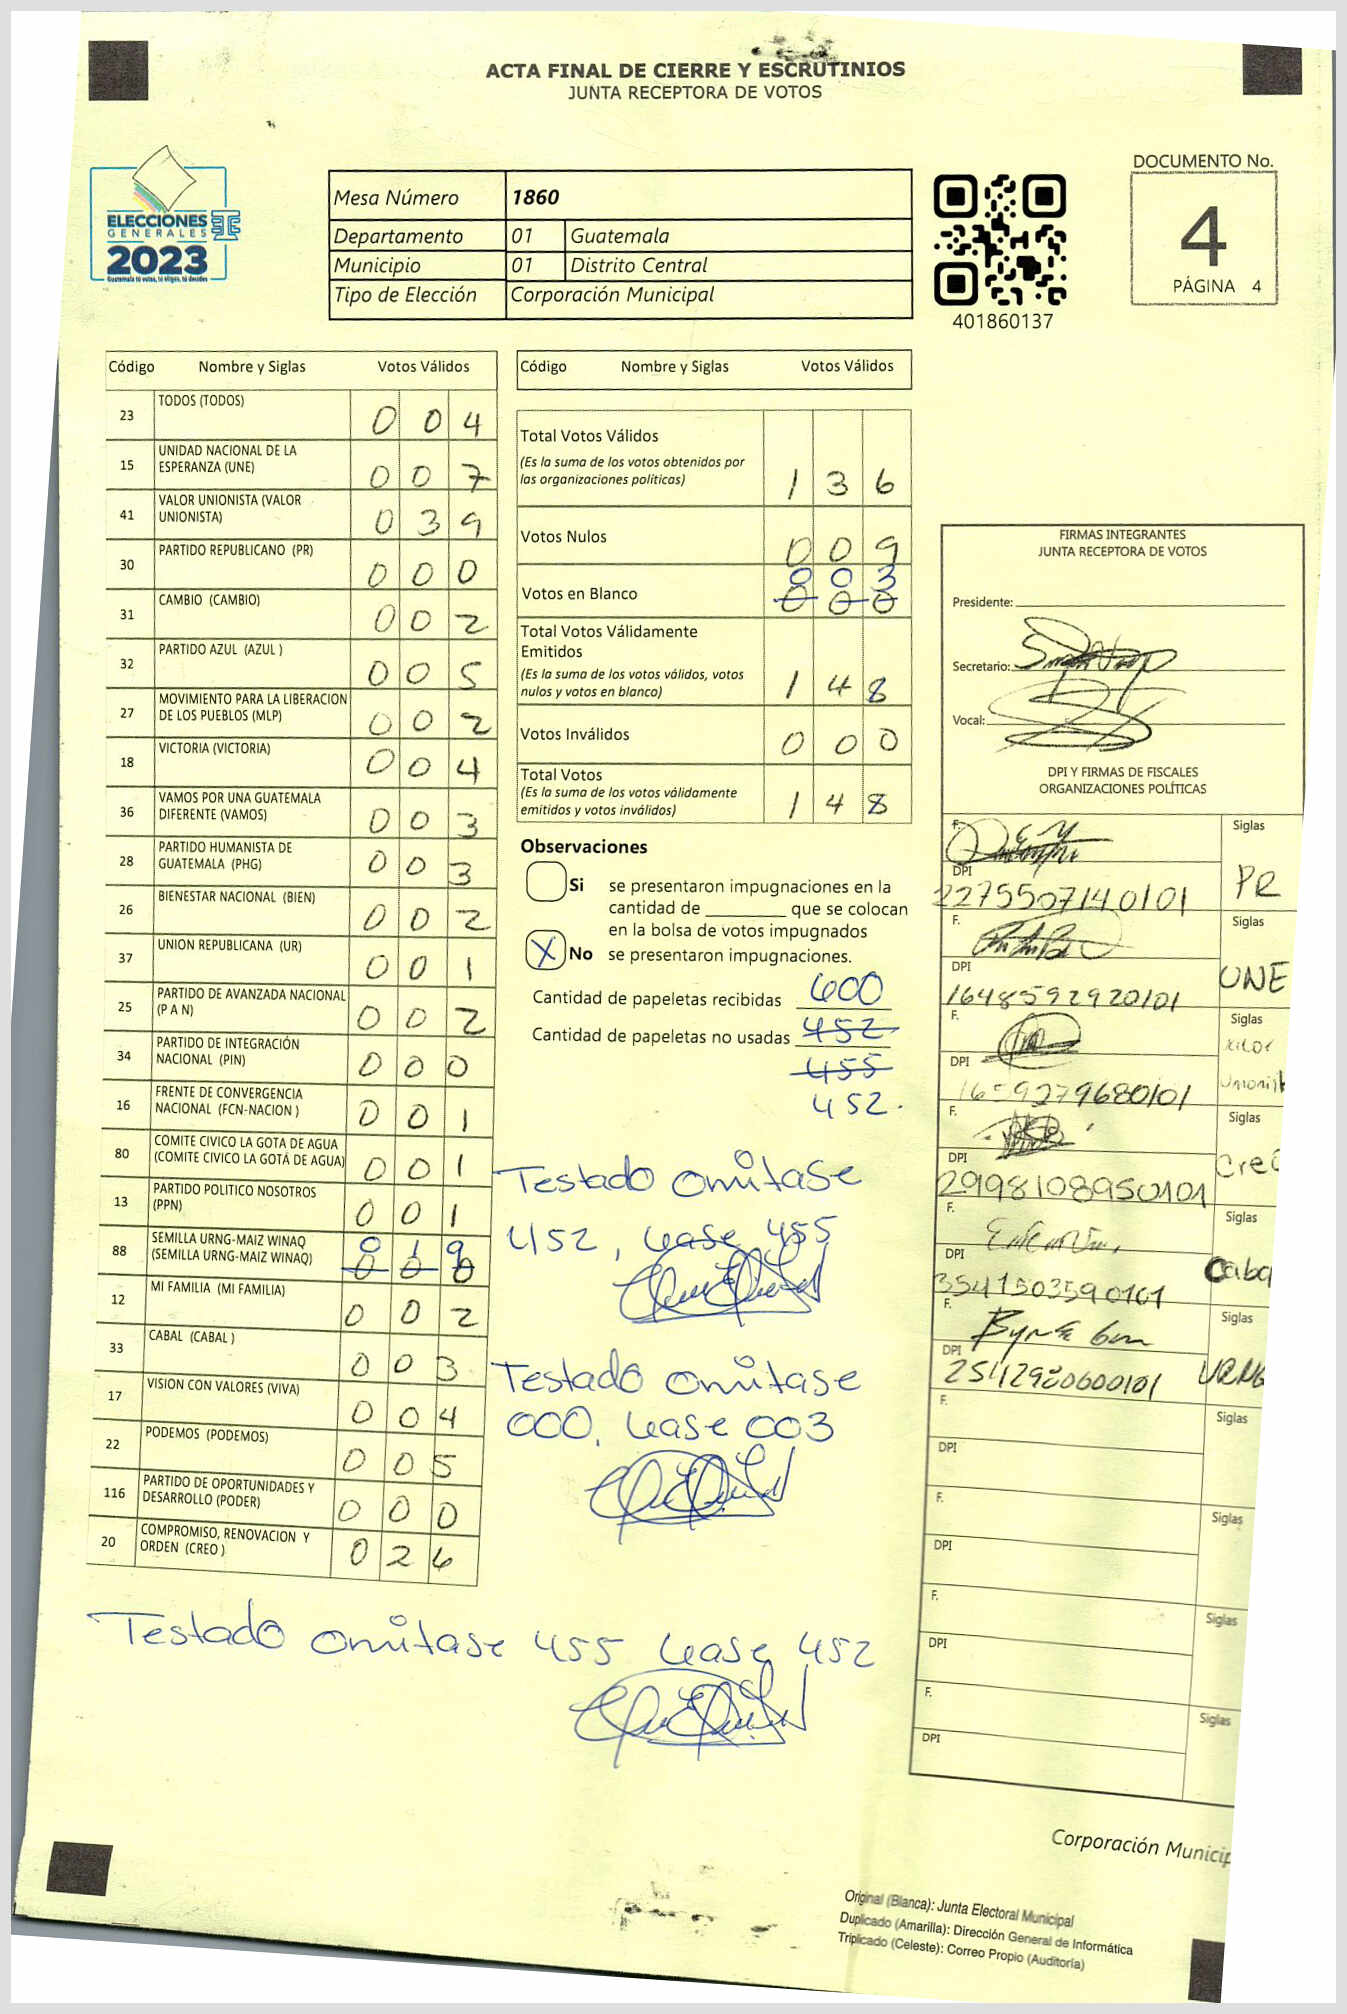 ACTA FINAL DE CIERRE Y ESCRUTINIOS
JUNTA RECEPTORA DE VOTOS
DOCUMENTO No.
4
PÁGINA 4
ELECCIONES
GENERALES
2023
Guatemala tú votas, tú eliges, tú decides
Mesa Número 1860
Departamento 01 Guatemala
Municipio 01 Distrito Central
Tipo de Elección Corporación Municipal
401860137
Código Nombre y Siglas Votos Válidos
23 TODOS (TODOS) 0 0 4
15 UNIDAD NACIONAL DE LA
ESPERANZA (UNE) 0 0 7
41 VALOR UNIONISTA (VALOR
UNIONISTA) 0 3 9
30 PARTIDO REPUBLICANO (PR) 0 0 0
31 CAMBIO (CAMBIO) 0 0 2
32 PARTIDO AZUL (AZUL ) 0 0 5
27 MOVIMIENTO PARA LA LIBERACION
DE LOS PUEBLOS (MLP) 0 0 2
18 VICTORIA (VICTORIA) 0 0 4
36 VAMOS POR UNA GUATEMALA
DIFERENTE (VAMOS) 0 0 3
28 PARTIDO HUMANISTA DE
GUATEMALA (PHG) 0 0 3
26 BIENESTAR NACIONAL (BIEN) 0 0 2
37 UNION REPUBLICANA (UR) 0 0 1
25 PARTIDO DE AVANZADA NACIONAL
(P A N) 0 0 2
34 PARTIDO DE INTEGRACIÓN
NACIONAL (PIN) 0 0 0
16 FRENTE DE CONVERGENCIA
NACIONAL (FCN-NACION ) 0 0 1
80 COMITE CIVICO LA GOTA DE AGUA
(COMITE CIVICO LA GOTA DE AGUA) 0 0 1
13 PARTIDO POLITICO NOSOTROS
(PPN) 0 0 1
88 SEMILLA URNG-MAIZ WINAQ
(SEMILLA URNG-MAIZ WINAQ) 0 1 9
0 0 0
12 MI FAMILIA (MI FAMILIA) 0 0 2
33 CABAL (CABAL ) 0 0 3
17 VISION CON VALORES (VIVA) 0 0 4
22 PODEMOS (PODEMOS) 0 0 5
116 PARTIDO DE OPORTUNIDADES Y
DESARROLLO (PODER) 0 0 0
20 COMPROMISO, RENOVACION Y
ORDEN (CREO ) 0 2 6
Código Nombre y Siglas Votos Válidos
Total Votos Válidos
(Es la suma de los votos obtenidos por
las organizaciones políticas) 1 3 6
Votos Nulos 0 0 9
Votos en Blanco 0 0 3
0 0 0
Total Votos Válidamente
Emitidos
(Es la suma de los votos válidos, votos
nulos y votos en blanco) 1 4 8
Votos Inválidos 0 0 0
Total Votos
(Es la suma de los votos válidamente
emitidos y votos inválidos) 1 4 8
Observaciones
Si se presentaron impugnaciones en la
cantidad de ________ que se colocan
en la bolsa de votos impugnados
X No se presentaron impugnaciones.
Cantidad de papeletas recibidas 600
Cantidad de papeletas no usadas 452
455
452.
Testado omitase
452, Lease 455
Testado omitase
000, Lease 003
Testado omitase 455 Lease 452
FIRMAS INTEGRANTES
JUNTA RECEPTORA DE VOTOS
Presidente:
Secretario:
Vocal:
DPI Y FIRMAS DE FISCALES
ORGANIZACIONES POLÍTICAS
F. Siglas
DPI PR
2275507140101
F. Siglas
DPI UNE
1648592920101
F. Siglas
DPI Unionist
1659279680101
F. Siglas
DPI Creo
2998108950101
F. Siglas
DPI Caba
3541503590101
F. Siglas
DPI URNG
2542980600101
F. Siglas
DPI
F. Siglas
DPI
F. Siglas
DPI
F. Siglas
DPI
Corporación Municip
Original (Blanca): Junta Electoral Municipal
Duplicado (Amarilla): Dirección General de Informática
Triplicado (Celeste): Correo Propio (Auditoría)